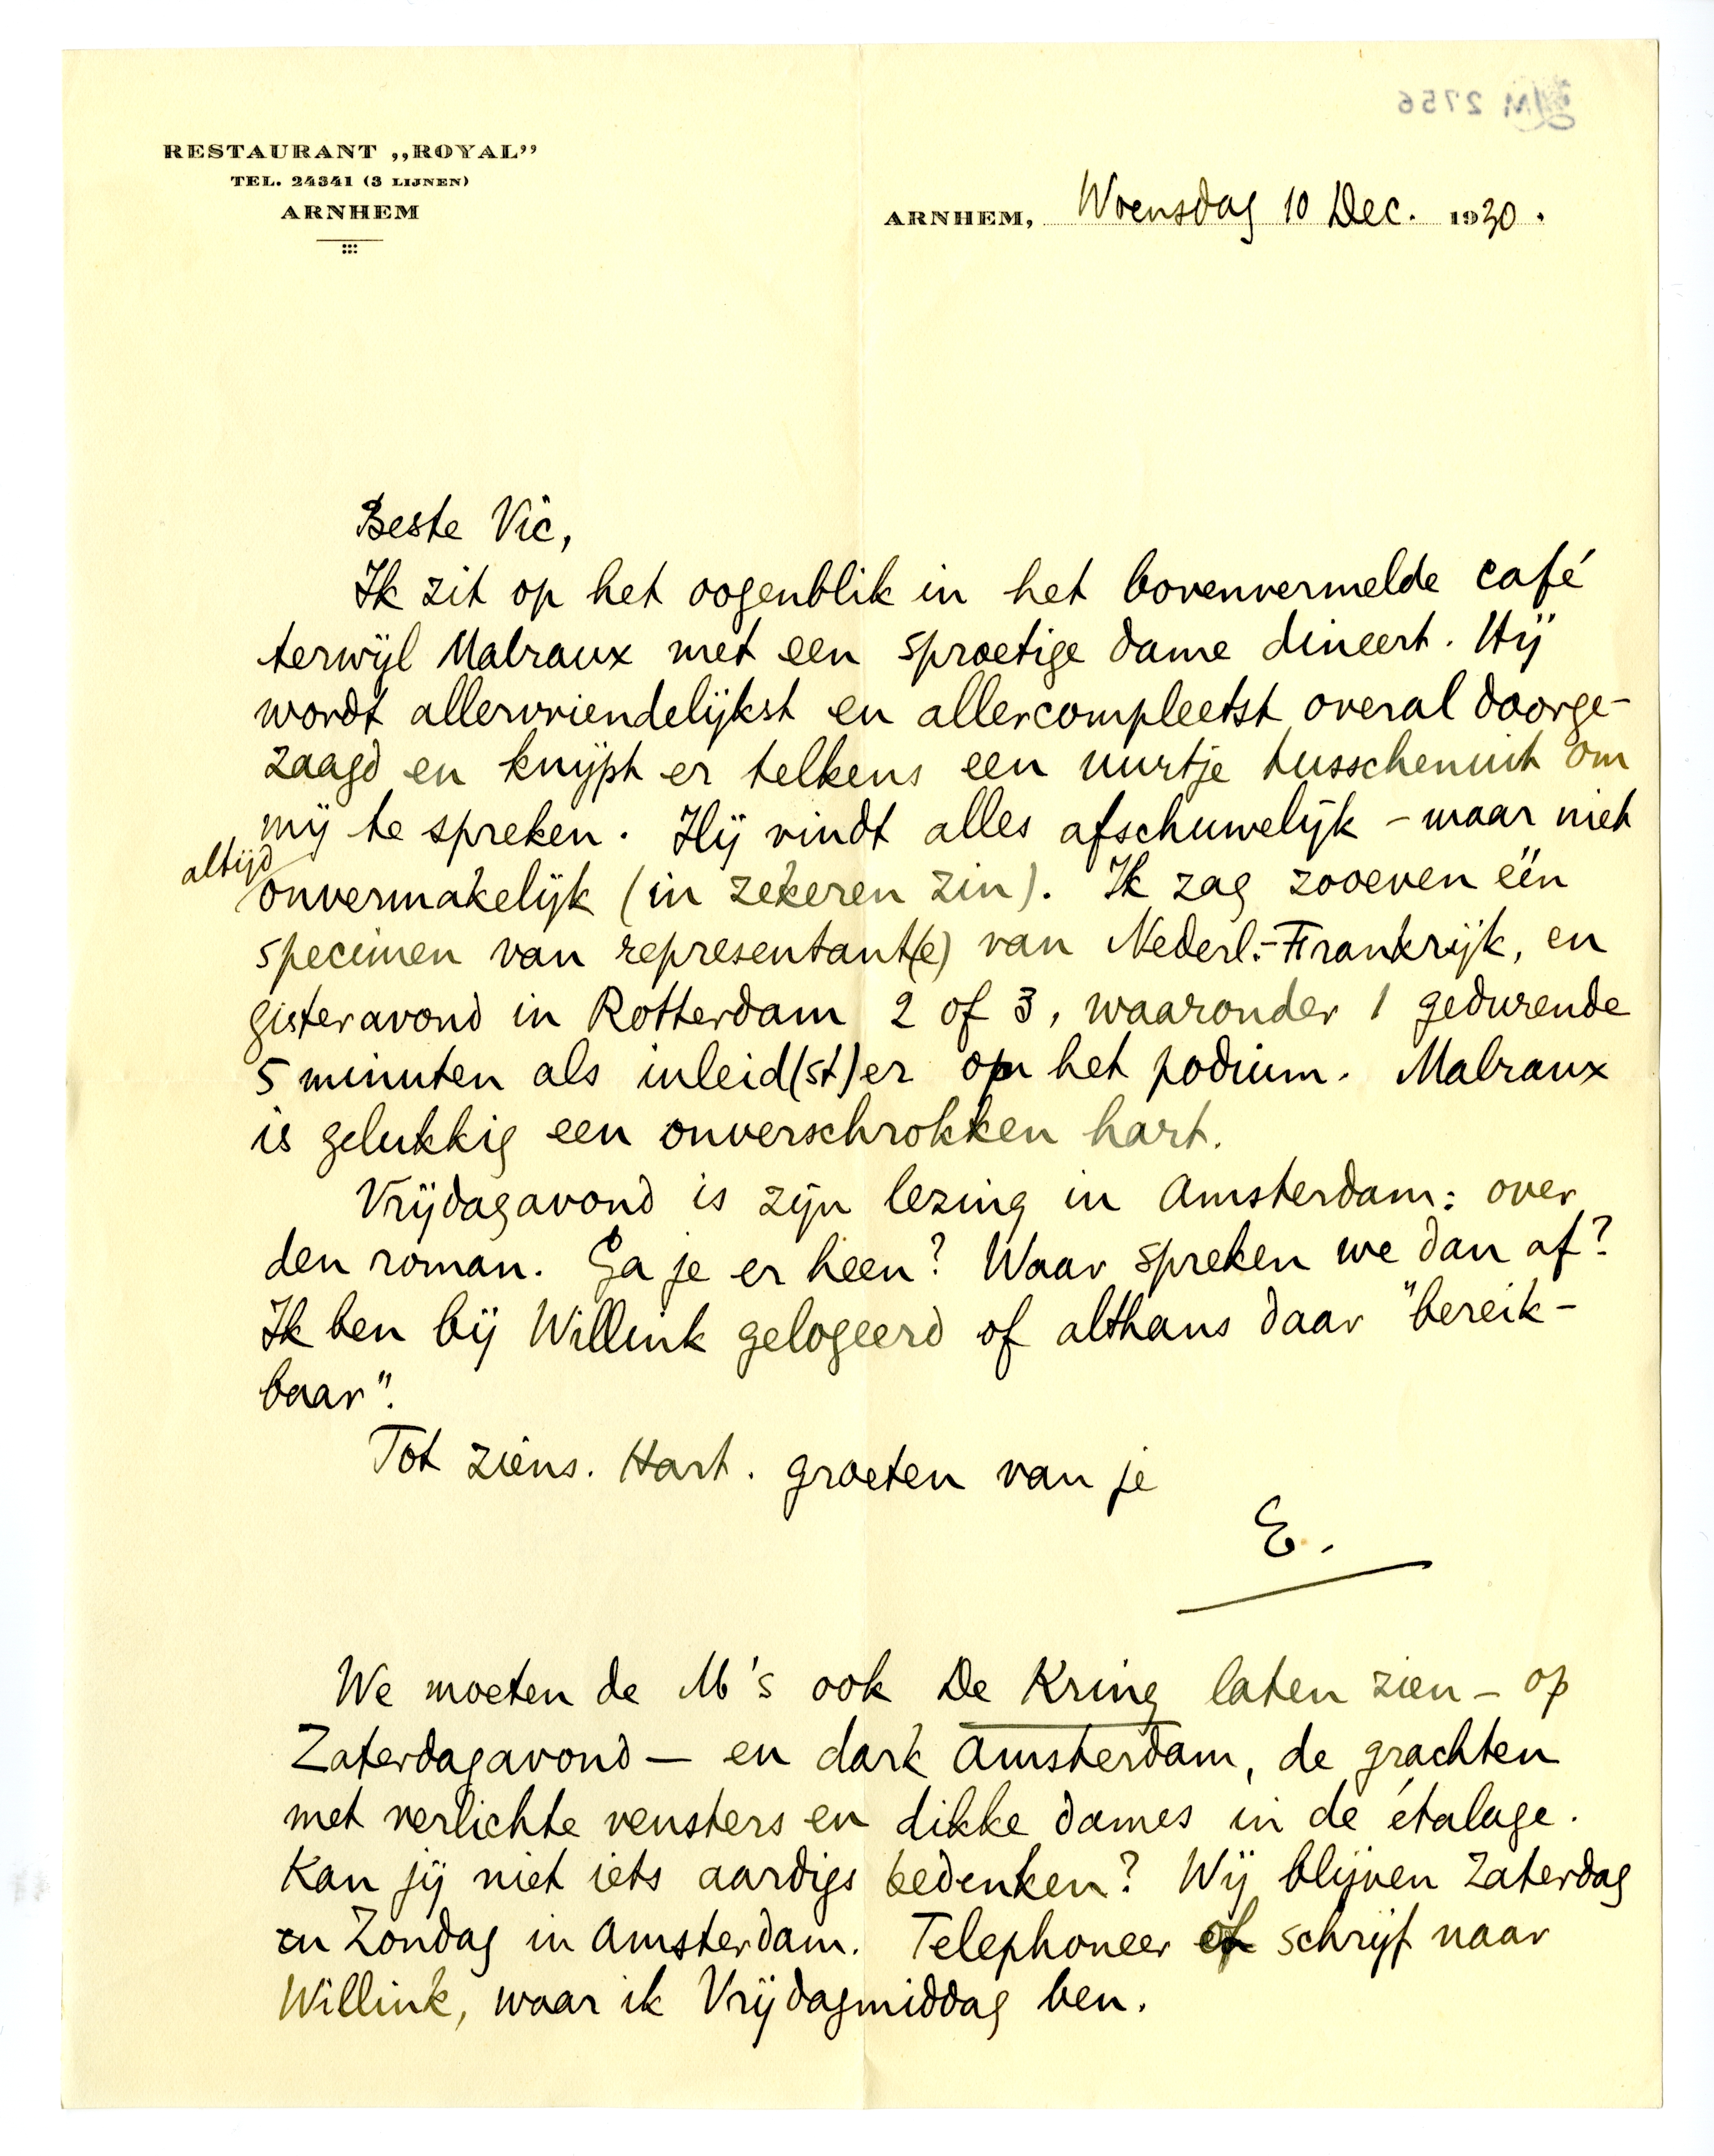 RESTAURANT „ROYAL”
TEL. 24341 (3 LIJNEN)
ARNHEM
LM 2756
ARNHEM, Woensdag 10 Dec. 1930.
Beste Vic,
Ik zit op het oogenblik in het bovenvermelde café
terwijl Malraux met een sproetige dame dineert. Hij
wordt allervriendelijkst en allercompleetst overal doorge-
zaagd en knijpt er telkens een uurtje tusschenuit om
mij te spreken. Hij vindt alles afschuwelijk – maar niet
altijd
onvermakelijk (in zekeren zin). Ik zag zooeven één
specimen van representant(e) van Nederl.-Frankrijk, en
gisteravond in Rotterdam 2 of 3, waaronder 1 gedurende
5 minuten als inleid(st)er op het podium. Malraux
is gelukkig een onverschrokken hart.
Vrijdagavond is zijn lezing in Amsterdam: over
den roman. Ga je er heen? Waar spreken we dan af?
Ik ben bij Willink gelogeerd of althans daar "bereik-
baar".
Tot ziens. Hart. groeten van je
E.
We moeten de M's ook De Kring laten zien – op
Zaterdagavond – en dark Amsterdam, de grachten
met verlichte vensters en dikke dames in de étalage.
Kan jij niet iets aardigs bedenken? Wij blijven Zaterdag
en Zondag in Amsterdam. Telephoneer of schrijf naar
Willink, waar ik Vrijdagmiddag ben.